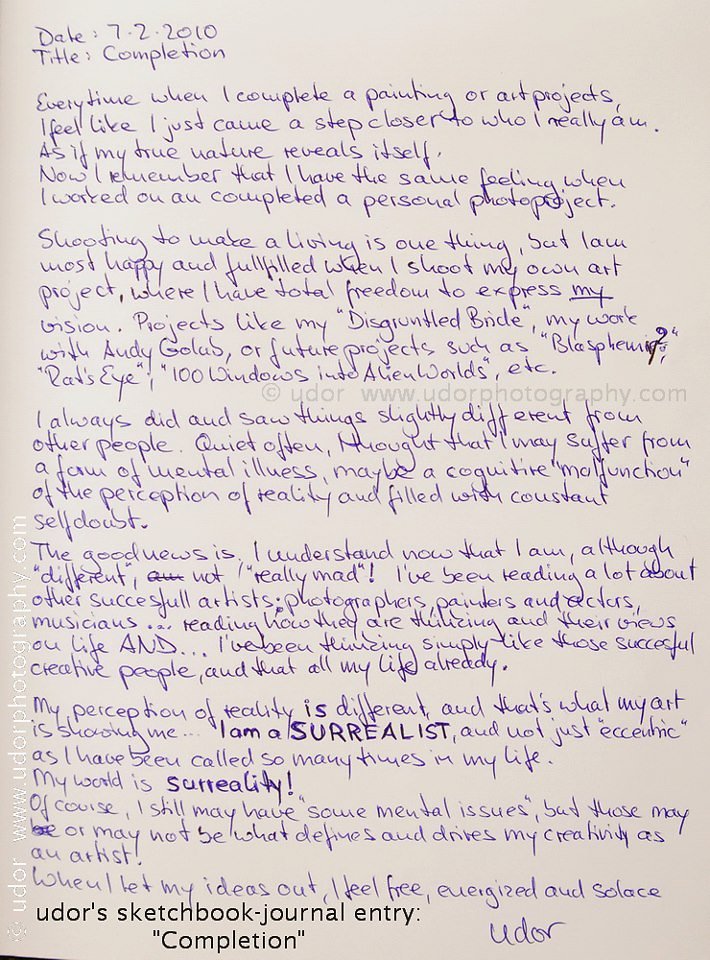 Date: 7.2.2010
Title: Completion
Everytime when I complete a painting or artprojects,
I feel like I just came a step closer to who I really am.
As if my true nature reveals itself.
Now I remember that I have the same feeling when
I worked on an completed a personal photoproject.
Shooting to make a living is one thing, but I am
most happy and fullfilled when I shoot my own art
project, where I have total freedom to express my
vision. Projects like my "Disgruntled Bride", my work
with Andy Golub, or future projects such as "Blasphemy?"
"Rat's Eye", "100 Windows into Alien Worlds", etc.
© udor www.udorphotography.com
I always did and saw things slightly different from
other people. Quiet often, I thought that I may suffer from
a form of mental illness, maybe a cognitive "malfunction"
of the perception of reality and filled with constant
selfdoubt.
The good news is, I understand now that I am, although
"different", am not "really mad"! I've been reading a lot about
other succesfull artists; photographers, painters and actors,
musicians... reading how they are thinking and their views
on life AND... I've been thinking simply like those succesful
creative people, and that all my life already.
My perception of reality is different, and that's what my art
is showing me... I am a SURREALIST, and not just "eccentric"
as I have been called so many times in my life.
My world is surreality!
Of course, I still may have "some mental issues", but those may
be or may not be what defines and drives my creativity as
an artist!
When I let my ideas out, I feel free, energized and solace
udor
udor's sketchbook-journal entry:
"Completion"
© udor www.udorphotography.com www.udorphotography.com